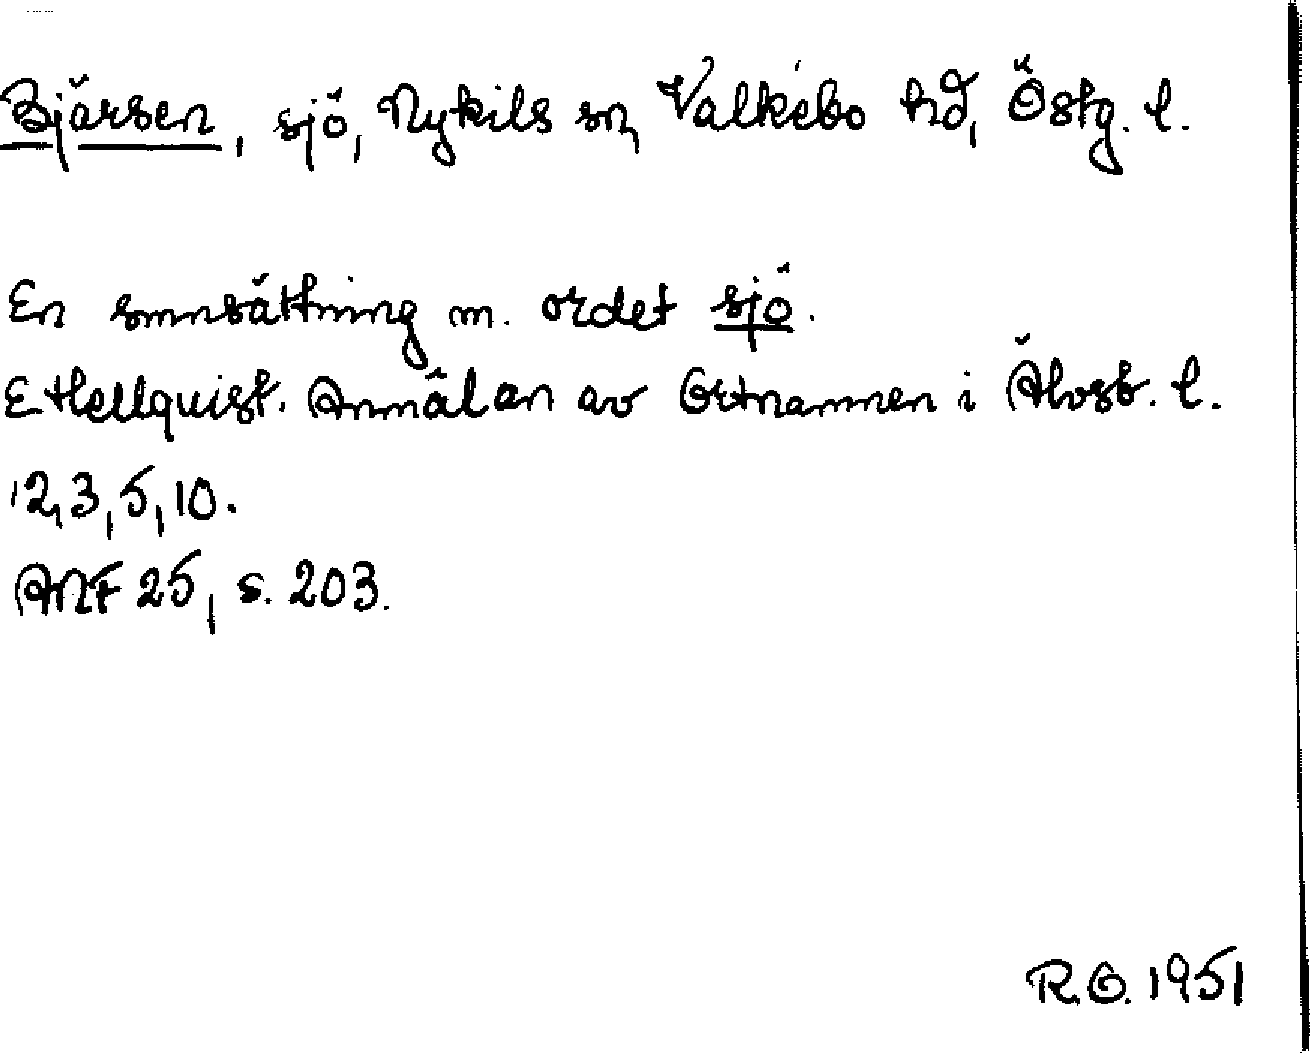 Bjärsen, sjö, Nykils sn, Valkebo hd, Östg. l.
En smnsättning m. ordet sjö.
E Hellquist. Anmälan av Ortnamnen i Älvsb. l.
12,3,5,10.
ANF 25, s. 203.
R.O. 1951